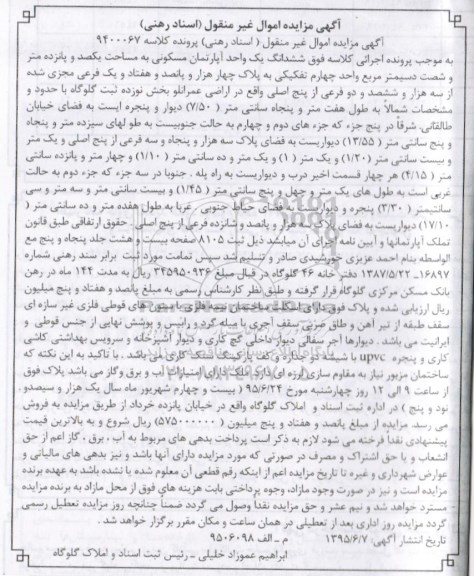 آگهی مزایده اموال غیر منقول (اسناد رهنی)
آگهی مزایده اموال غیر منقول ( اسناد رهنی) پرونده کلاسه ۹۴۰۰۰۶۷
به موجب پرونده اجرائی کلاسه فوق ششدانگ یک واحد آپارتمان مسکونی به مساحت یکصد و پانزده متر
و شصت دسیمتر مربع واحد چهارم تفکیکی به پلاک چهار هزار و پانصد و هفتاد و یک فرعی مجزی شده
از سه هزار و ششصد و دو فرعی از پنج اصلی واقع در اراضی عمرانلو بخش نوزده ثبت گلوگاه با حدود و
مشخصات شمالا به طول هفت متر و پنجاه سانتی متر ( ۷/۵۰) دیوار و پنجره ایست به فضای خیابان
طالقانی. شرقا در پنج جزء که جزء های دوم و چهارم به حالت جنوبیست به طو لهای سیزده متر و پنجاه
و پنج سانتی متر (۱۳/۵۵) دیواریست به فضای پلاک سه هزار و پنجاه و سه فرعی از پنج اصلی و یک متر
و بیست سانتی متر (۱/۲۰) و یک متر ( ۱) و یک متر و ده سانتی متر ( ۱/۱۰) و چهار متر و پانزده سانتی
متر ( ۴/۱۵) هر چهار قسمت اخیر درب و دیواریست به راه پله . جنوبا در سه جزء که جزء دوم به حالت
غربی است به طول های یک متر و چهل و پنج سانتی متر ( ۱/۴۵) و بیست سانتی متر و سه متر و سی
سانتیمتر ( ۳/۳۰) پنجره و دیواریست به فضای حیاط جنوبی . غربا به طول هفده متر و ده سانتی متر (
۱۷/۱۰) دیواریست به فضای پلاک سه هزار و پانصد و شانزده فرعی از پنج اصلی . حقوق ارتفاقی طبق قانون
تملک آپارتمانها و آیین نامه اجرای آن میباشد ذیل ثبت ۸۱۰۵ صفحه بیست و هشت جلد پنجاه و پنج مع
الواسطه بنام احمد عزیزی خورشیدی صادر و تسلیم شد سپس تمامت مورد ثبت برابر سند رهنی شماره
۱۶۸۹۷- ۱۳۸۷/۵/۲۲ دفتر خانه ۴۶ گلوگاه در قبال مبلغ ۳۴۵۹۵۰۹۳۶ ریال به مدت ۱۴۴ ماه در رهن
بانک مسکن مرکزی گلوگاه قرار گرفته و طبق نظر کارشناس رسمی به مبلغ پانصد و هفتاد و پنج میلیون
ریال ارزیابی شده و پلاک فوق دارای اسکلت ساختمان نیمه فلزی با ستون های قوطی فلزی غیر سازه ای
سقف طبقه از تیر آهن و طاق ضربی سقف آجری با میله گرد و رابیتس و پوشش نهایی از جنس قوطی و
ایرانیت می باشد . دیوارها آجر سفالی دیوار داخلی گچ کاری و دیوار آشپزخانه و سرویس بهداشتی کاشی
کاری و پنجره upvc با شیشه دو جداره و کف پارکینگ سنگ کاری می باشد . با تاکید به این نکته که
ساختمان مزبور نیاز به مقاوم سازی لرزه ای دارد. ملک دارای امتیازات آب و برق وگاز می باشد پلاک فوق
از ساعت ۹ الی ۱۲ روز چهارشنبه مورخ ۹۵/۶/۲۴ ( بیست و چهارم شهریور ماه سال یک هزار و سیصدو
نود و پنج ) در اداره ثبت اسناد و املاک گلوگاه واقع در خیابان پانزده خرداد از طریق مزایده به فروش
می رسد. مزایده از مبلغ پانصد و هفتاد و پنج میلیون ( ۵۷۵۰۰۰۰۰۰) ریال شروع و به بالاترین قیمت
پیشنهادی نقدا فرخته می شود لازم به ذکر است پرداخت بدهی های مربوط به آب ، برق ، گاز اعم از حق
انشعاب و یا حق اشتراک و مصرف در صورتی که مورد مزایده دارای آنها باشد و نیز بدهی های مالیاتی و
عوارض شهرداری و غیره تا تاریخ مزایده اعم از اینکه رقم قطعی آن معلوم شده یا نشده باشد به عهده برنده
مزایده است و نیز در صورت وجود مازاد، وجوه پرداختی بابت هزینه های فوق از محل مازاد به برنده مزایده
مسترد خواهد شد و نیم عشر و حق مزایده نقدا وصول می گردد ضمنا چنانچه روز مزایده تعطیل رسمی
گردد مزایده روز اداری بعد از تعطیلی در همان ساعت و مکان مقرر برگزار خواهد شد .
تاریخ انتشار آگهی: ۱۳۹۵/۶/۷ م – الف ۹۵۰۶۰۹۸
ابراهیم عموزاد خلیلی – رئیس ثبت اسناد و املاک گلوگاه